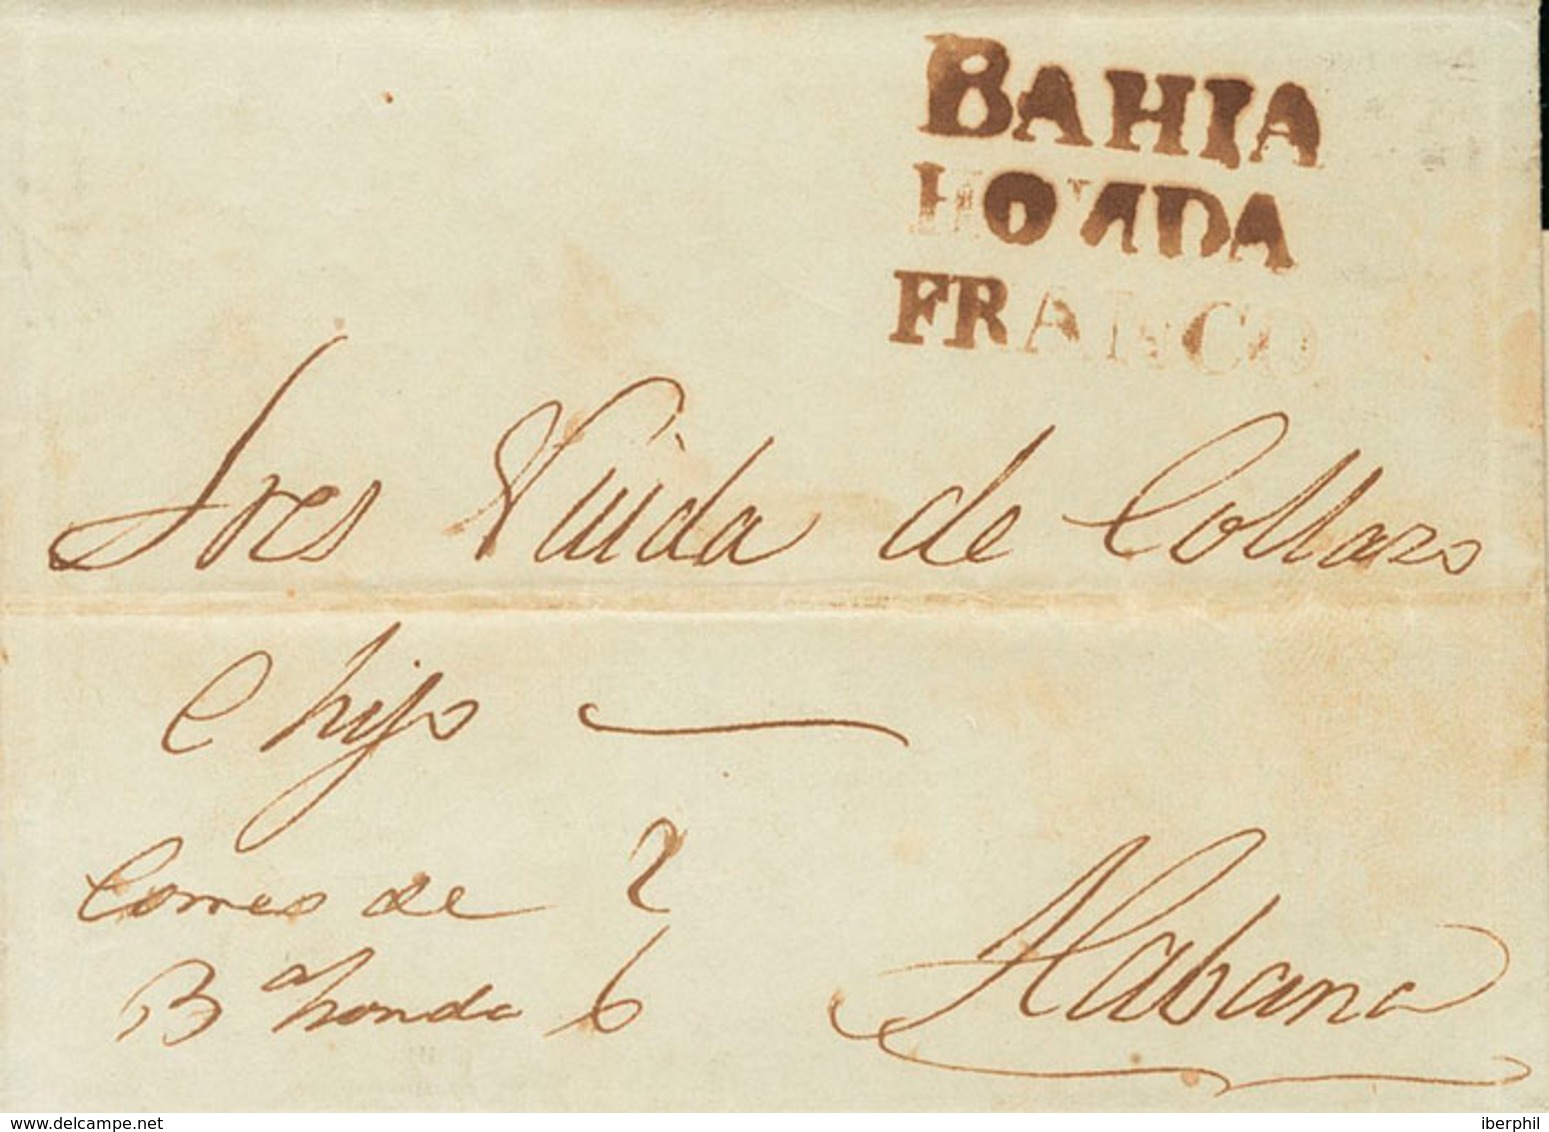 BAHIA
HONDA
FRANCO
Sres Viuda de Collazo
e hijo
Correo de 2
Bª honda 6
Habana
delcampe.net
iberphil